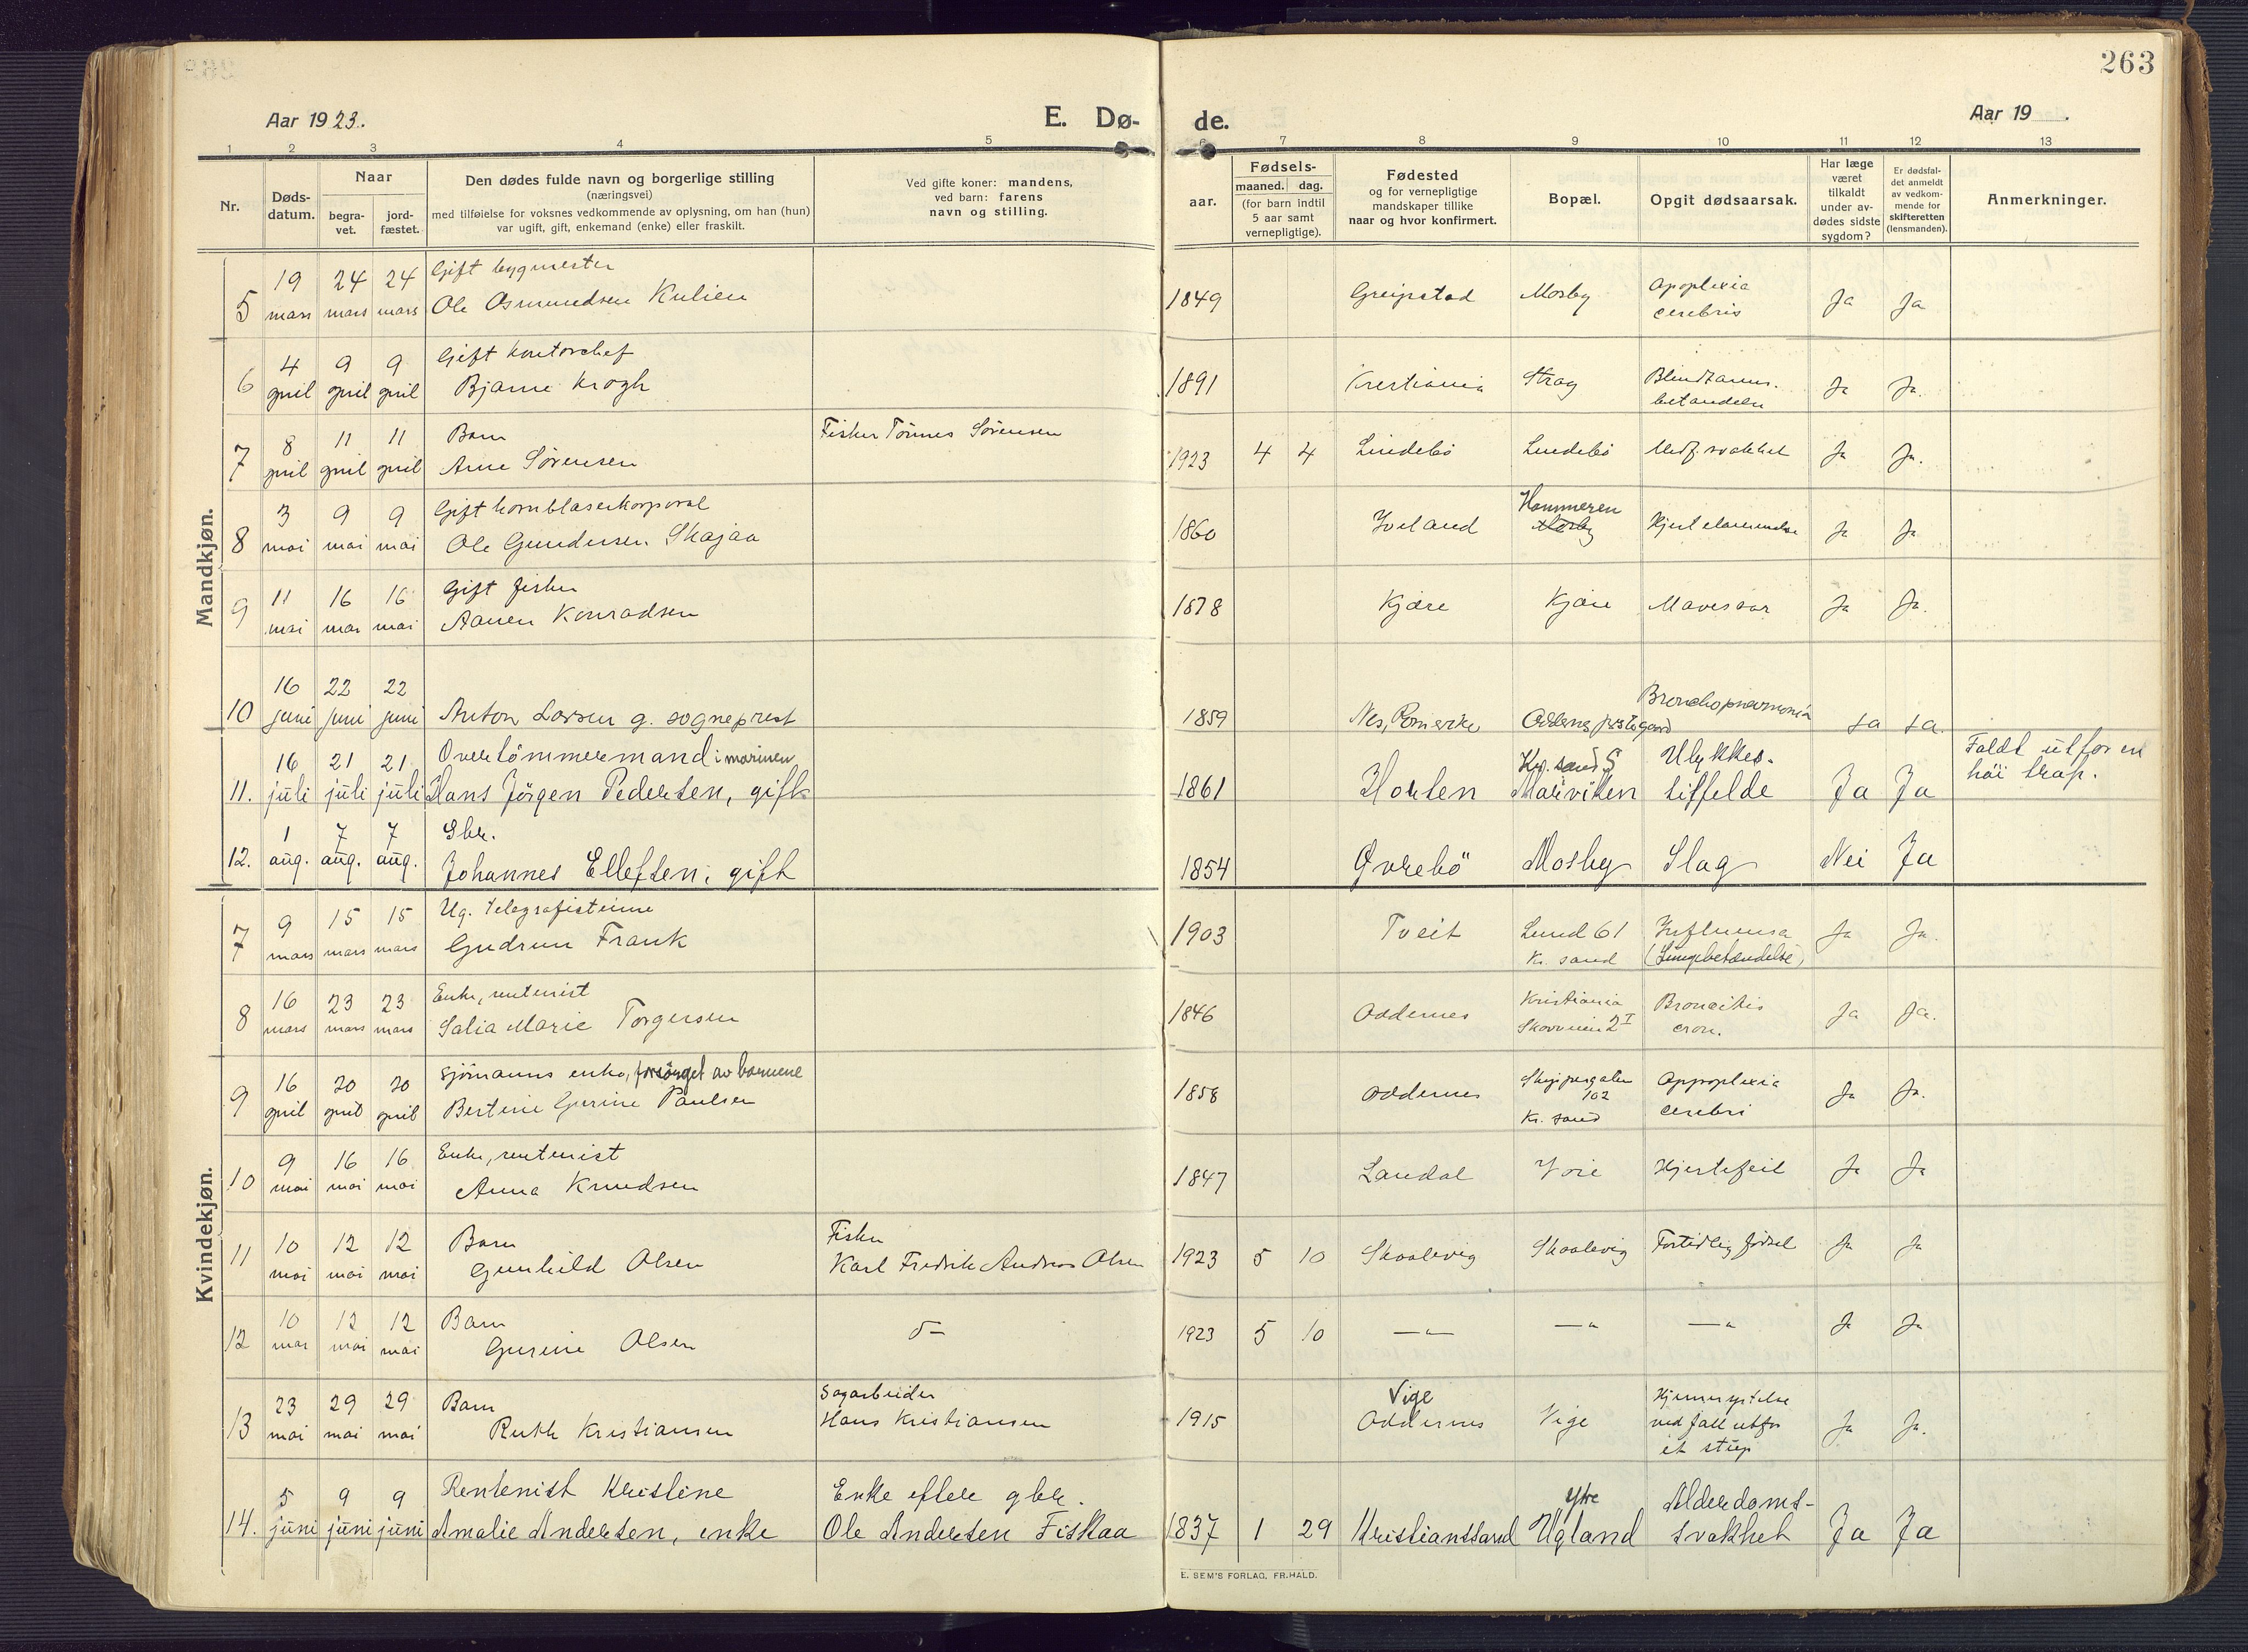 263
Aar 1923.
E. Dø-
de.
Aar 19 .
1 2 3 4 5 6 7 8 9 10 11 12 13
Nr.
Døds-
datum.
Naar
begra-
vet.
jord-
fæstet.
Den dødes fulde navn og borgerlige stilling
(næringsvei)
med tilføielse for voksnes vedkommende av oplysning, om han (hun)
var ugift, gift, enkemand (enke) eller fraskilt.
Ved gifte koner: mandens,
ved barn: farens
navn og stilling.
aar.
Fødsels-
maaned. dag.
(for barn indtil
5 aar samt
vernepligtige).
Fødested
og for vernepligtige
mandskaper tillike
naar og hvor konfirmert.
Bopæl.
Opgit dødsaarsak.
Har læge
været
tilkaldt
under av-
dødes sidste
sygdom?
Er dødsfal-
det anmeldt
av vedkom-
mende for
skifteretten
(lensmanden).
Anmerkninger.
Mandkjøn.
5
19
mars
24
mars
24
mars
Gift bygmester
Ole Osmundsen Kulien
1849
Greipstad
Mosby
Apoplexia
cerebris
Ja
Ja
6
4
april
9
april
9
april
Gift kontorchef
Bjarne Krogh
1891
Kristiania
Strag
Blindtarms-
betændelse
Ja
Ja.
7
8
april
11
april
11
april
Barn
Arne Sørensen
Fisker Tønnes Sørensen
1923
4
4
Lindebö
Lindebö
Medf. svakhet
Ja
Ja.
8
3
mai
9
mai
9
mai
Gift hornblaserkorporal
Ole Gundersen Skajaa
1860
Iveland
Hommeren
Mosby
Hjertelammelse
Ja
Ja
9
11
mai
16
mai
16
mai
Gift fisker
Aanen Konradsen
1878
Kjære
Kjære
Mavesaar
Ja
Ja.
10
16
juni
22
juni
22
juni
Anton Larsen g. sogneprest
1859
Nes, Romerike
Oddernes prestegaard
Bronchopneumonia
Ja
Ja.
11.
16
juli
21
juli
21
juli
Overtömmermand i marinen
Hans Jörgen Pedersen, gift
1861
Horten
Kr.sand S
Marviken
Ulykkes-
tilfelde
Ja
Ja
Faldt utfor en
höi trap.
12.
1
aug.
7
aug.
7
aug.
Gbr.
Johannes Ellefsen, gift
1854
Øvrebö
Mosby
Slag
Nei
Ja
Kvindekjøn.
7
9
mars
15
mars
15
mars
Ug. telegrafistinne
Gudrun Frank
1903
Tveit
Lund 61
Kr. sand
Influensa
(Lungebetændelse)
Ja
Ja.
8
16
mars
23
mars
23
mars
Enke, rentenist
Salia Marie Torgersen
1846
Oddernes
Kristiania
Skovveien 2 I
Broncitis
cron.
Ja
Ja.
9
16
april
20
april
20
april
Sjömanns enke, forsörget av barnene
Bertine Gurine Paulsen
1858
Oddernes
Skippergaten
102
Kr. sand
Appoplexia
cerebri
Ja
Ja.
10
9
mai
16
mai
16
mai
Enke, rentenist
Anna Knudsen
1847
Laudal
Voie
Hjertefeil
Ja
Ja
11
10
mai
12
mai
12
mai
Barn
Gunhild Olsen
Fisker
Karl Fredrik Andreas Olsen
1923
5
10
Skaalevig
Skaalevig
Fortidlig fødsel
Ja
Ja
12
10
mai
12
mai
12
mai
Barn
Gurine Olsen
do
1923
5
10
—"—
—"
—"
Ja
Ja
13
23
mai
29
mai
29
mai
Barn
Ruth Kristiansen
Sagarbeider
Hans Kristiansen
1915
Vige
Oddernes
Vige
Hjernerystelse
ved fall utfor
et stup
Ja
Ja.
14.
5
juni
9
juni
9
juni
Rentenist Kristine
Amalie Andersen, enke
Enke efter gbr.
Ole Andersen Fiskaa
1837
1
29
Kristianssand
Ytre
Ugland
Alderdoms-
svakhet
Ja
Ja
E. SEM'S FORLAG, FR.HALD.